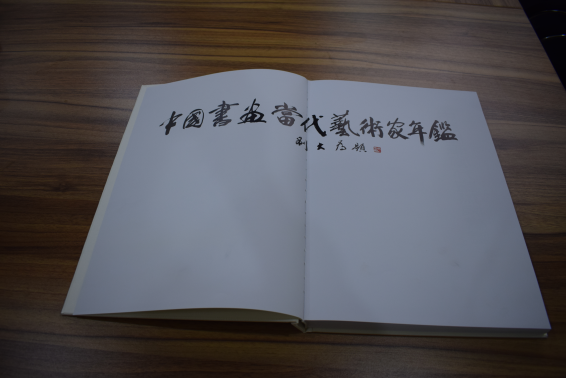 中国書画當代藝術家年鑑
劉大為題